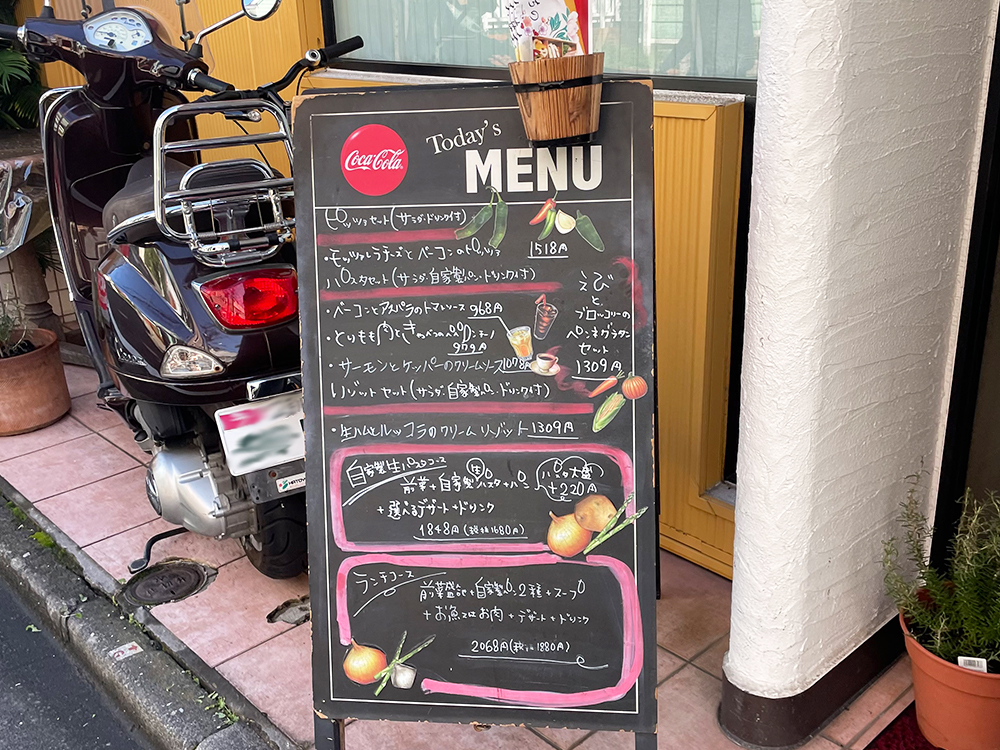 Coca-Cola
Today's
MENU
ピッツァセット(サラダ・ドリンク付)
・モッツァレラチーズとベーコンのピッツァ 1518円
パスタセット(サラダ・自家製パン・ドリンク付)
・ベーコンとアスパラのトマトソース 968円
・とりもも肉ときのこの
979円
・サーモンとケッパーのクリームソース 1078円
えび
と
ブロッコリーの
ペンネグラタン
セット
1309円
リゾットセット(サラダ・自家製パン・ドリンク付)
・生ハムとルッコラのクリームリゾット 1309円
自家製生パスタコース
前菜+自家製生パスタ+パン
パスタ大盛
+220円
+選べるデザート+ドリンク
1848円(税抜1680円)
ランチコース
前菜盛合+自家製パン2種+スープ
+お魚又はお肉+デザート+ドリンク
2068円(税抜1880円)